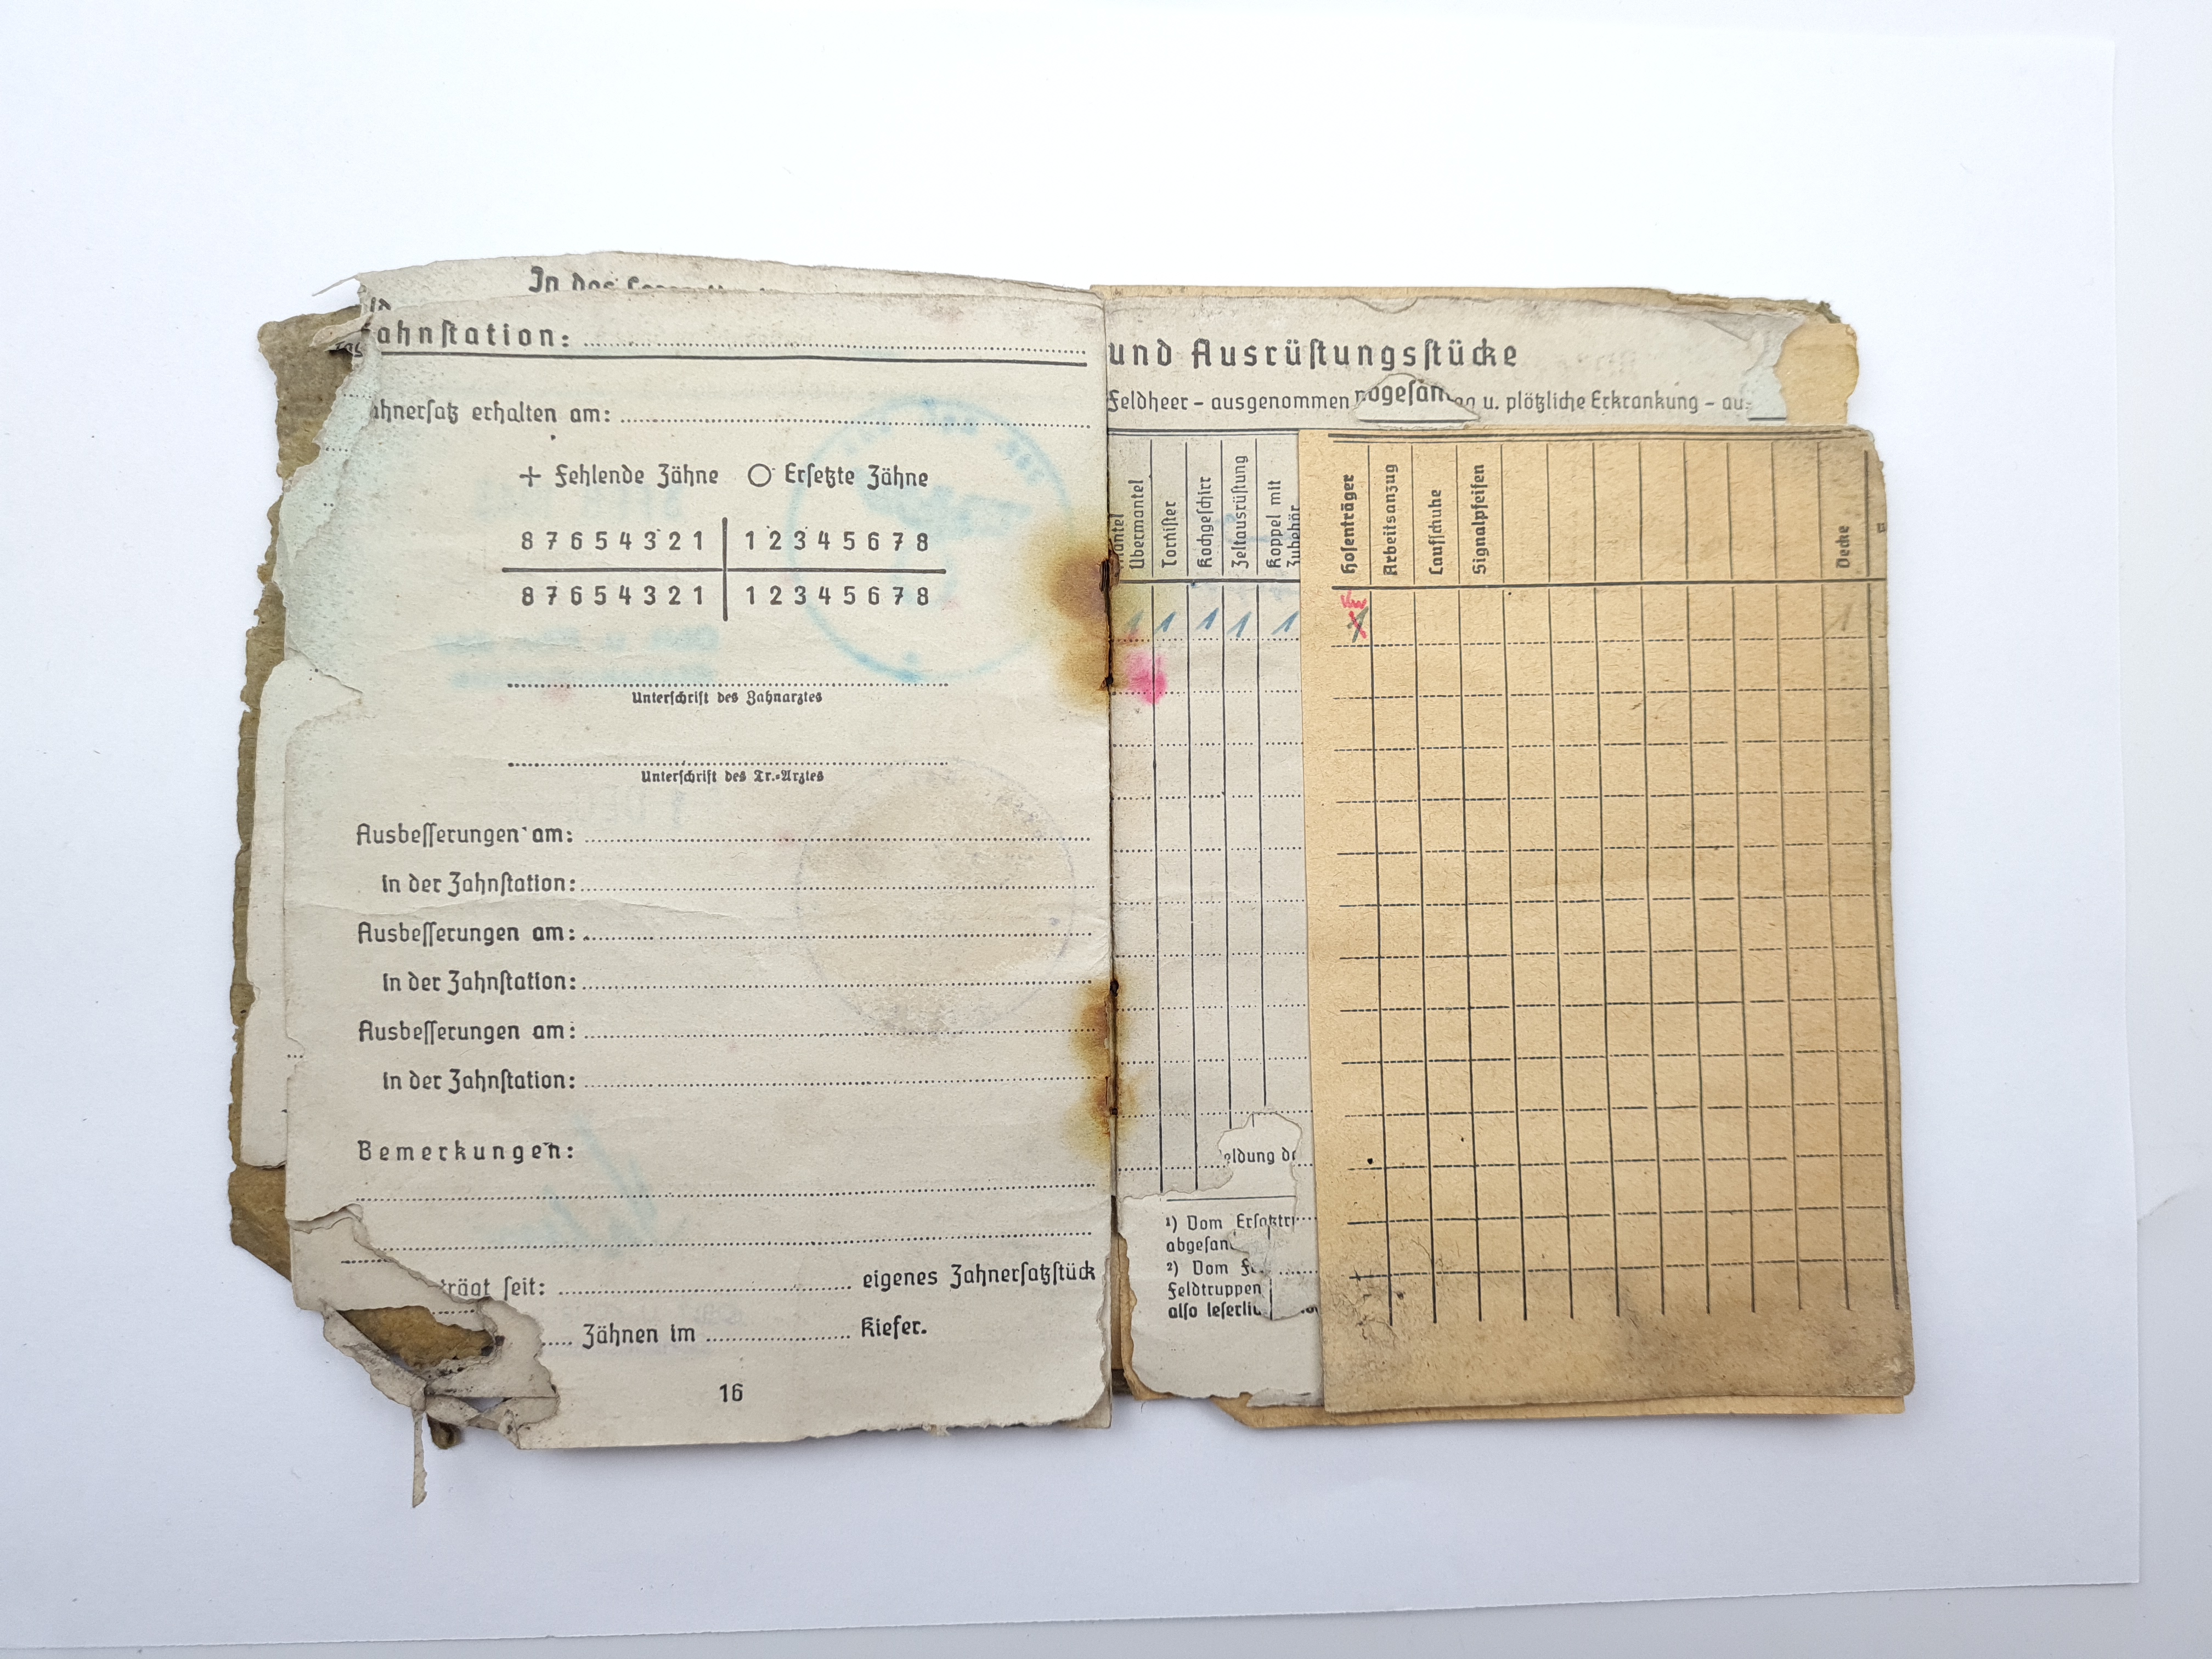 In das
ahnstation:
ahnersatz erhalten am:
+ Fehlende Zähne ○ Ersetzte Zähne
8 7 6 5 4 3 2 1 | 1 2 3 4 5 6 7 8
8 7 6 5 4 3 2 1 | 1 2 3 4 5 6 7 8
Unterschrift des Zahnarztes
Unterschrift des Tr.-Arztes
Ausbesserungen am:
in der Zahnstation:
Ausbesserungen am:
in der Zahnstation:
Ausbesserungen am:
in der Zahnstation:
Bemerkungen:
trägt seit: eigenes Zahnersatzstück
Zähnen im Kiefer.
16
und Ausrüstungsstücke
Feldheer – ausgenommen u. plötzliche Erkrankung – aus
Mantel
Übermantel
Tornister
Kochgeschirr
Zeltausrüstung
Koppel mit
Zubehör
Hosenträger
Arbeitsanzug
Laufschuhe
Signalpfeifen
Decke
1 1 1 1 1 1 1
eldung de
1) Vom Ersatztr
abgesan
2) Vom
Feldtruppen
also leserlic